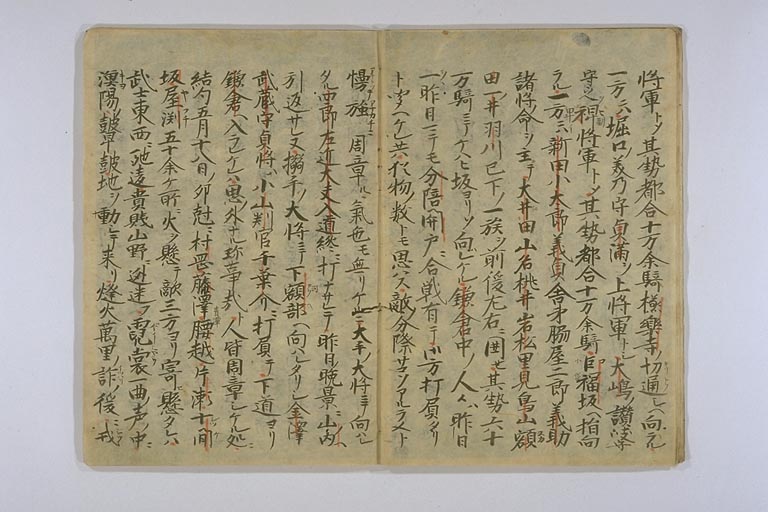 将軍トメ其勢都合十万余騎極楽寺ノ切通シヘ向ル
一方ニハ堀口美乃守貞満ヲ上将軍トシ大嶋ノ讃岐
守ヲ裨将軍トメ其勢都合十万余騎巨福坂ヘ指向
ラル一方ニハ新田小太郎義貞舎弟脇屋二郎義助
諸将命ヲ主テ大井田山名桃井岩松里見鳥山額
田一井羽川已下ノ一族ヲ前後左右ニ囲セ其勢六十
万騎ニテケハヒ坂ヨリソ向レケル鎌倉中ノ人々ハ昨日
一昨日ニテモ分陪関戸ニ合戦有テ御方打負タリ
ト聞ヘケレ共猶物ノ数トモ思ハス敵ノ分際サコソアルラメト
慢強周章ル気色モ無リケルニ大手ノ大将ニテ向レ
タル四郎左近大夫入道終ニ打ナサレテ昨日晩景ニ山内ヘ
引返サレヌ搦手ノ大将ニテ下ノ額部ヘ向ハレタリシ金澤
武蔵守貞将ハ小山判官千葉介ニ打負テ下道ヨリ
鎌倉ヘ入ラレケレハ思ノ外ナル珍事哉ト人皆周章シケル処ニ
結句五月十八日ノ卯剋ニ村岡藤澤腰越片瀬十間
坂屋五十余ケ所ニ火ヲ懸テ敵三方ヨリ寄懸タレハ
武士東西ニ馳違貴賎山野ニ逃迷フ霓裳一曲ノ声ノ中ニ
漁陽ノ鼙鼓地ヲ動シテ来リ烽火萬里ノ詐ノ後ニ戎